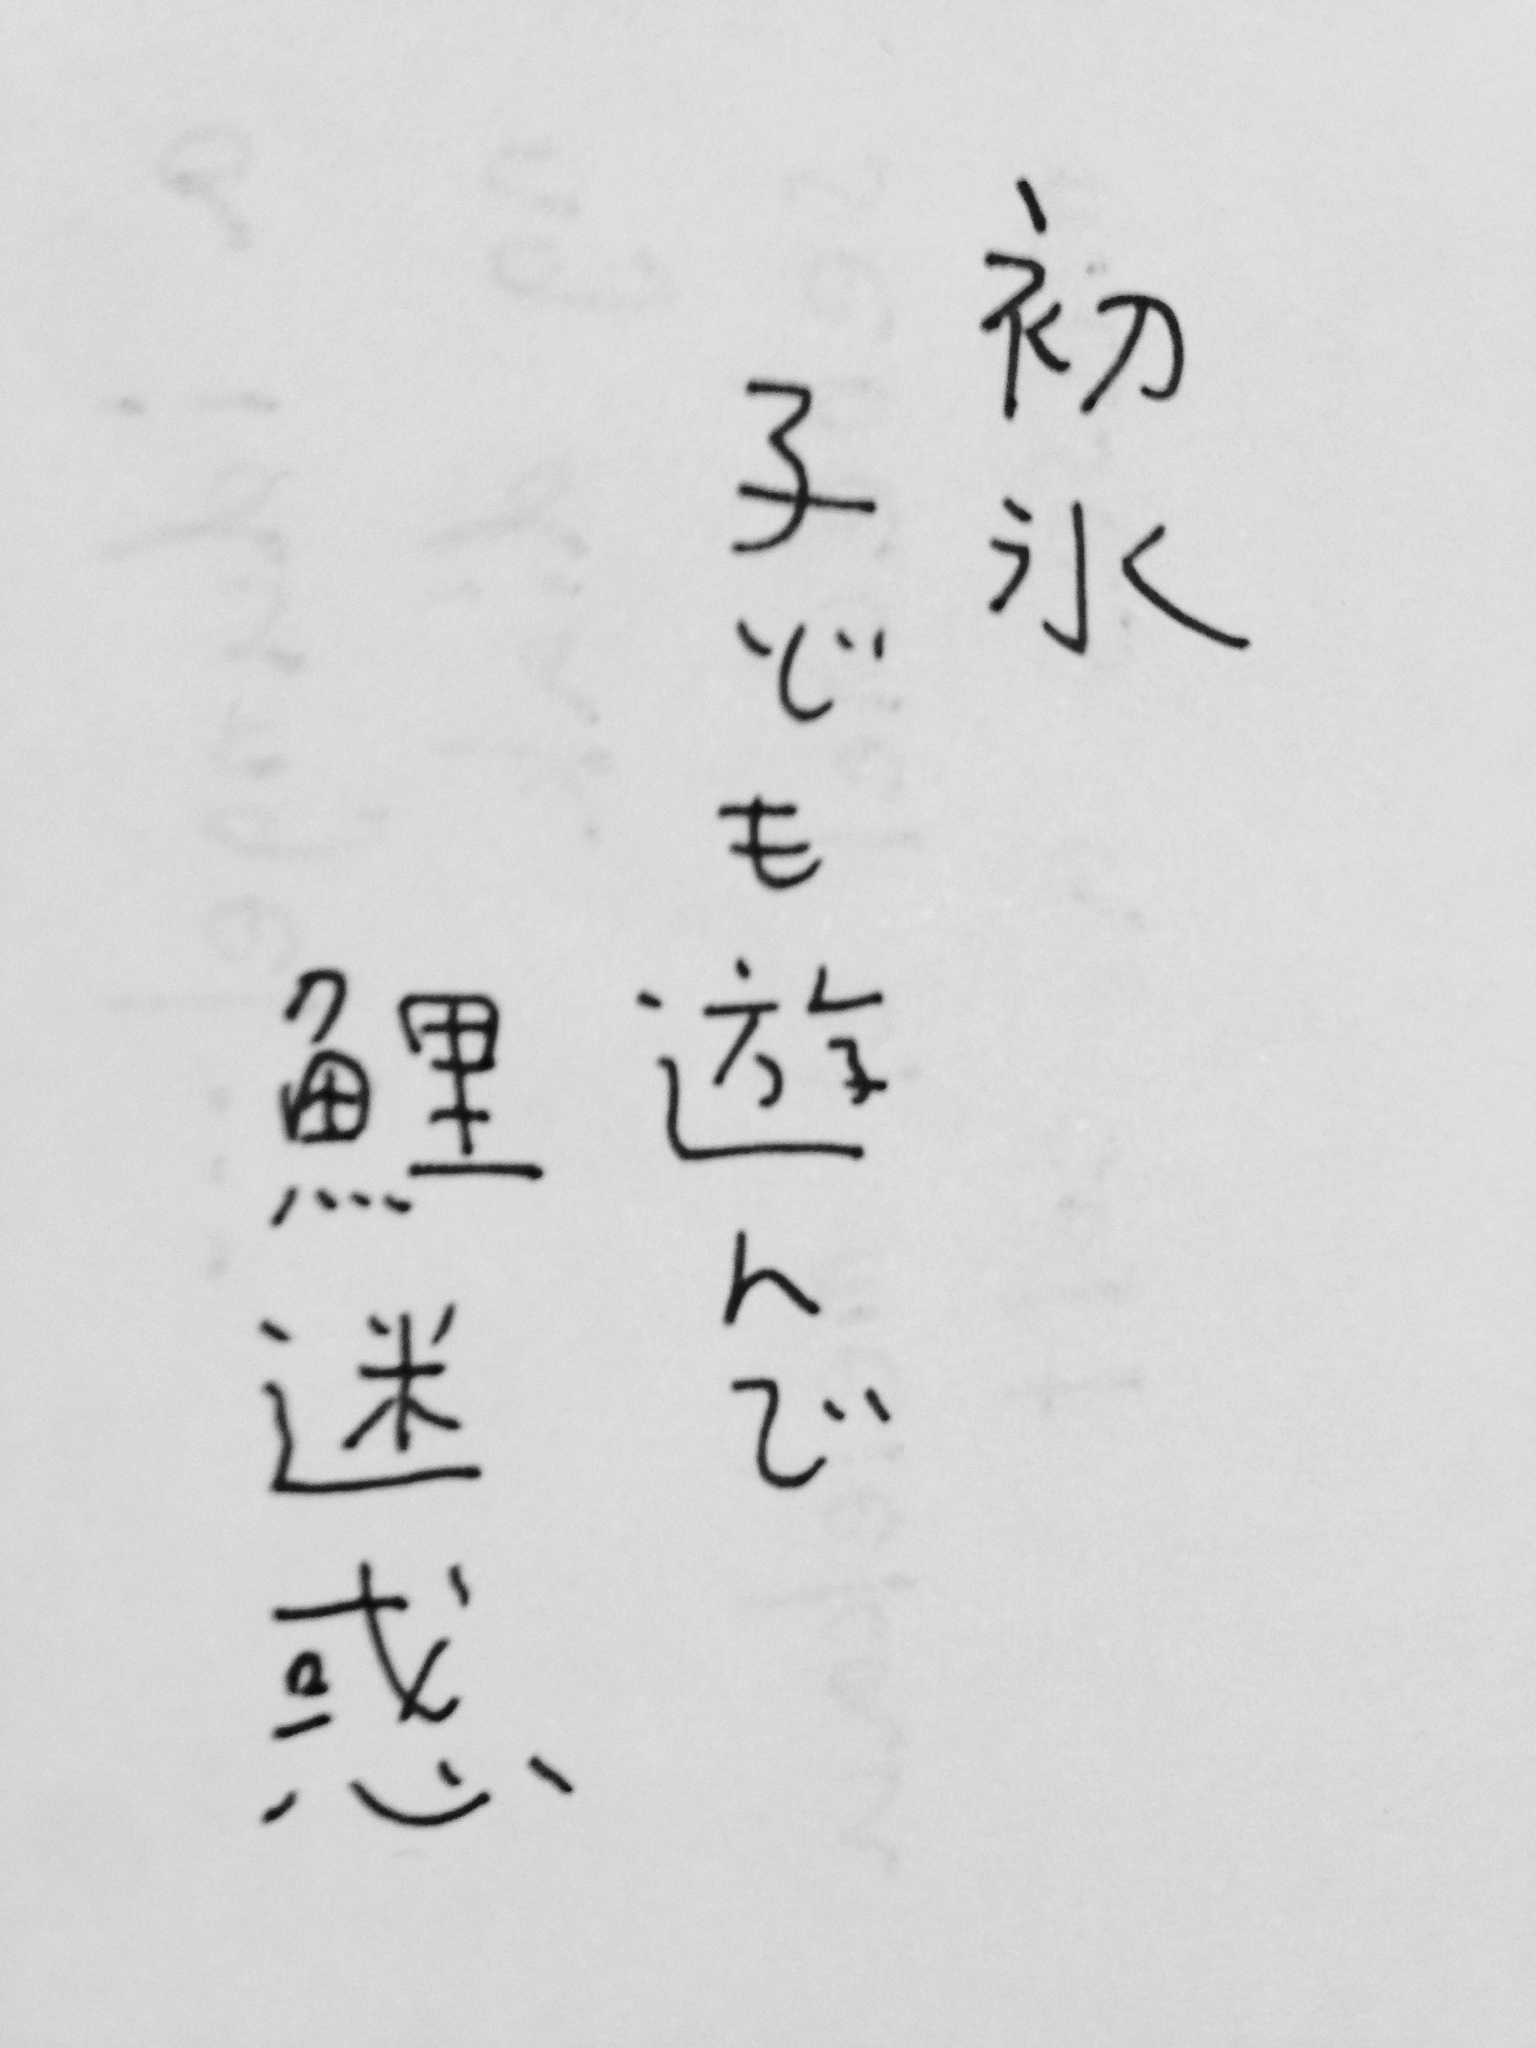 初氷
子ども遊んで
鯉迷惑